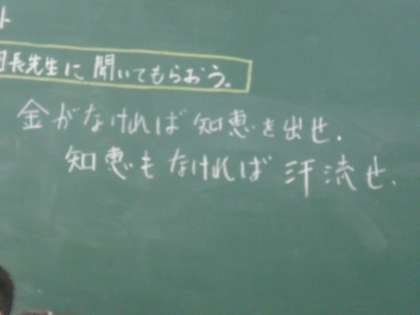 長先生に聞いてもらおう。
金がなければ知恵を出せ.
知恵もなければ汗流せ.